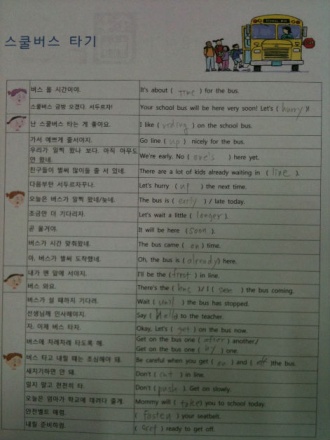 스쿨버스 타기
버스 올 시간이야. It's about ( time ) for the bus.
스쿨버스 금방 오겠다. 서두르자! Your school bus will be here very soon! Let's ( hurry )!
난 스쿨버스 타는 게 좋아요. I like ( riding ) on the school bus.
가서 예쁘게 줄서야지. Go line ( up ) nicely for the bus.
우리가 일찍 왔나 보다. 아직 아무도 안 왔네. We're early. No ( one's ) here yet.
친구들이 벌써 많이들 줄 서 있네. There are a lot of kids already waiting in ( line ).
다음부턴 서두르자꾸나. Let's hurry ( up ) the next time.
오늘은 버스가 일찍 왔네/늦네. The bus is ( early ) / late today.
조금만 더 기다리자. Let's wait a little ( longer ).
곧 올거야. It will be here ( soon ).
버스가 시간 맞춰왔네. The bus came ( on ) time.
아, 버스가 벌써 도착했네. Oh, the bus is ( already ) here.
내가 맨 앞에 서야지. I'll be the ( first ) in line.
버스 와요. There's the ( bus, we see ) the bus coming.
버스가 설 때까지 기다려. Wait ( until ) the bus has stopped.
선생님께 인사해야지. Say ( Hello ) to the teacher.
자, 이제 버스 타자. Okay. Let's ( get ) on the bus now.
버스에 차례차례 타도록 해. Get on the bus one ( after ) another/
Get on the bus one ( by ) one.
버스 타고 내릴 때는 조심해야 돼. Be careful when you get ( on ) and ( off ) the bus.
새치기하면 안 돼. Don't ( cut ) in line.
밀지 말고 천천히 타. Don't ( push ). Get on slowly.
오늘은 엄마가 학교에 데려다 줄게. Mommy will ( take ) you to school today.
안전벨트 매렴. ( Fasten ) your seatbelt.
내릴 준비하렴. ( Get ) ready to get off.